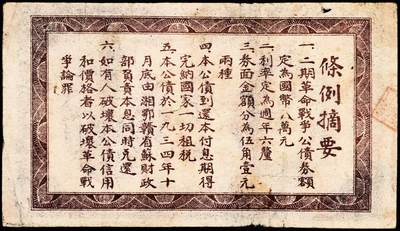 條例摘要
一.二期革命戰爭公債券額
定為國幣八萬元
二.利率定為週年六厘
三.券面金額分為伍角壹元
兩種
四.本公債到還本付息期得
完納國家一切租稅
五.本公債於一九三四年十
月底由湘鄂贛省蘇財政
部負責本息同時兌還
六.如有人破壞本公債信用
和價格者以破壞革命戰
爭論罪